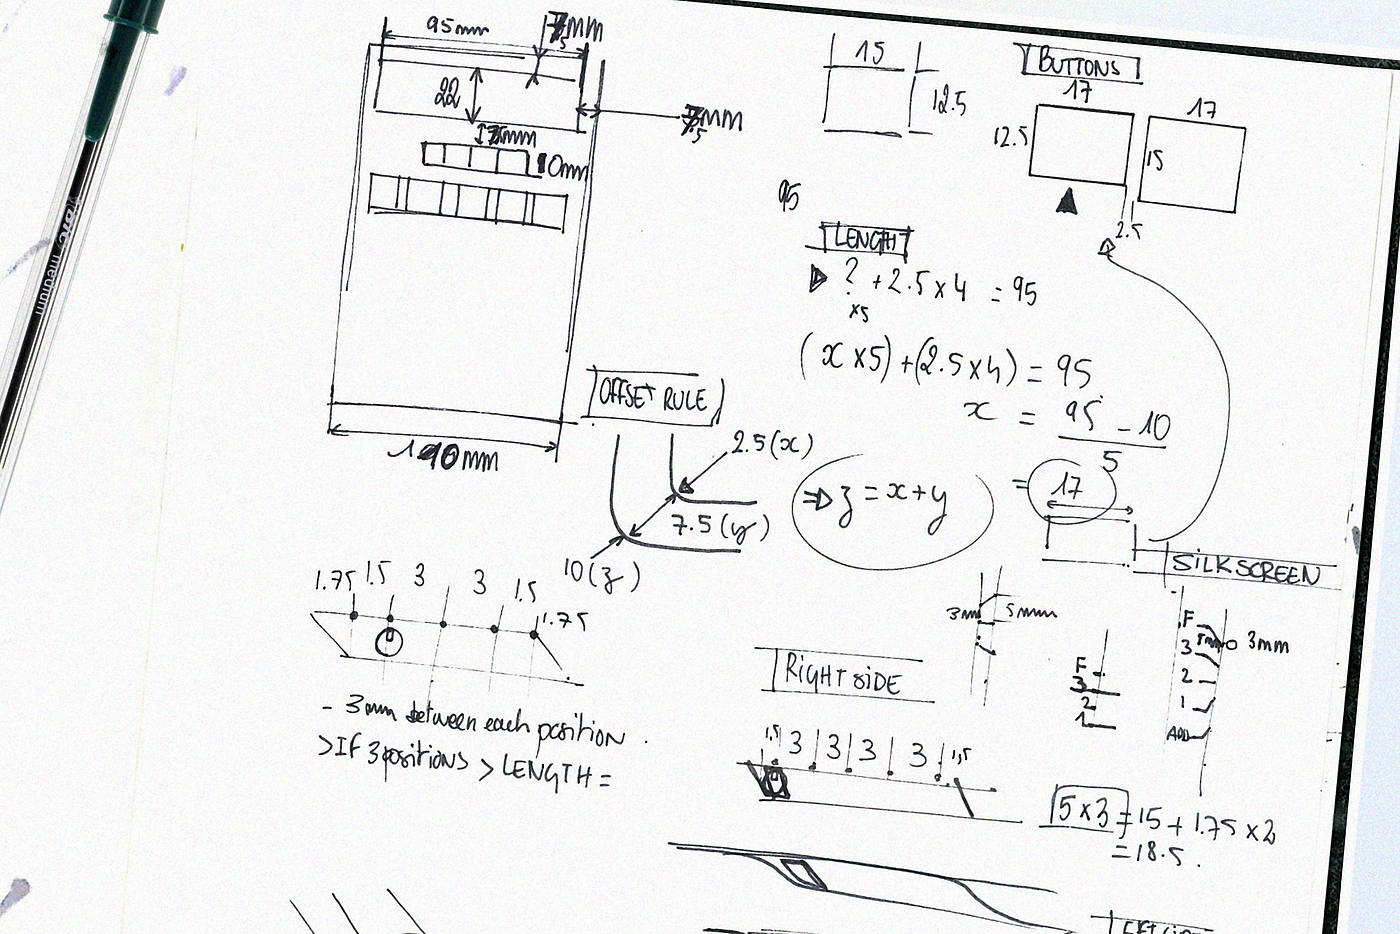 95mm
22
10mm
110mm
BIC medium
15
12.5
BUTTONS
17
17
12.5
15
2.5
95
LENGHT
? + 2.5 x 4 = 95
x5
(x x5) + (2.5 x 4) = 95
x = 95 - 10
5
= 17
OFFSET RULE
2.5 (x)
7.5 (y)
10 (z)
⇒ z = x + y
SILKSCREEN
1.75 1.5 3 3 1.5
1.75
- 3mm between each position.
> If 3 positions > LENGTH =
3mm 5mm
F
3
2
1
F
3 5mm 3mm
2
1
RIGHT SIDE
1,5 3 3 3 3 1,5
5 x 3 = 15 + 1.75 x 2
= 18.5.